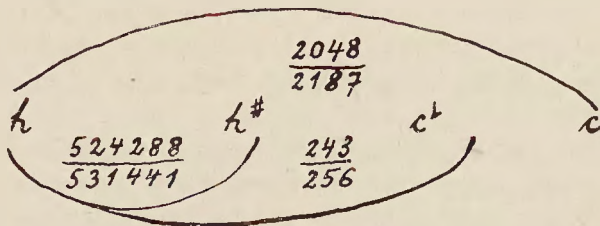 2048
2187
h h# c♭ c
524288 243
531441 256